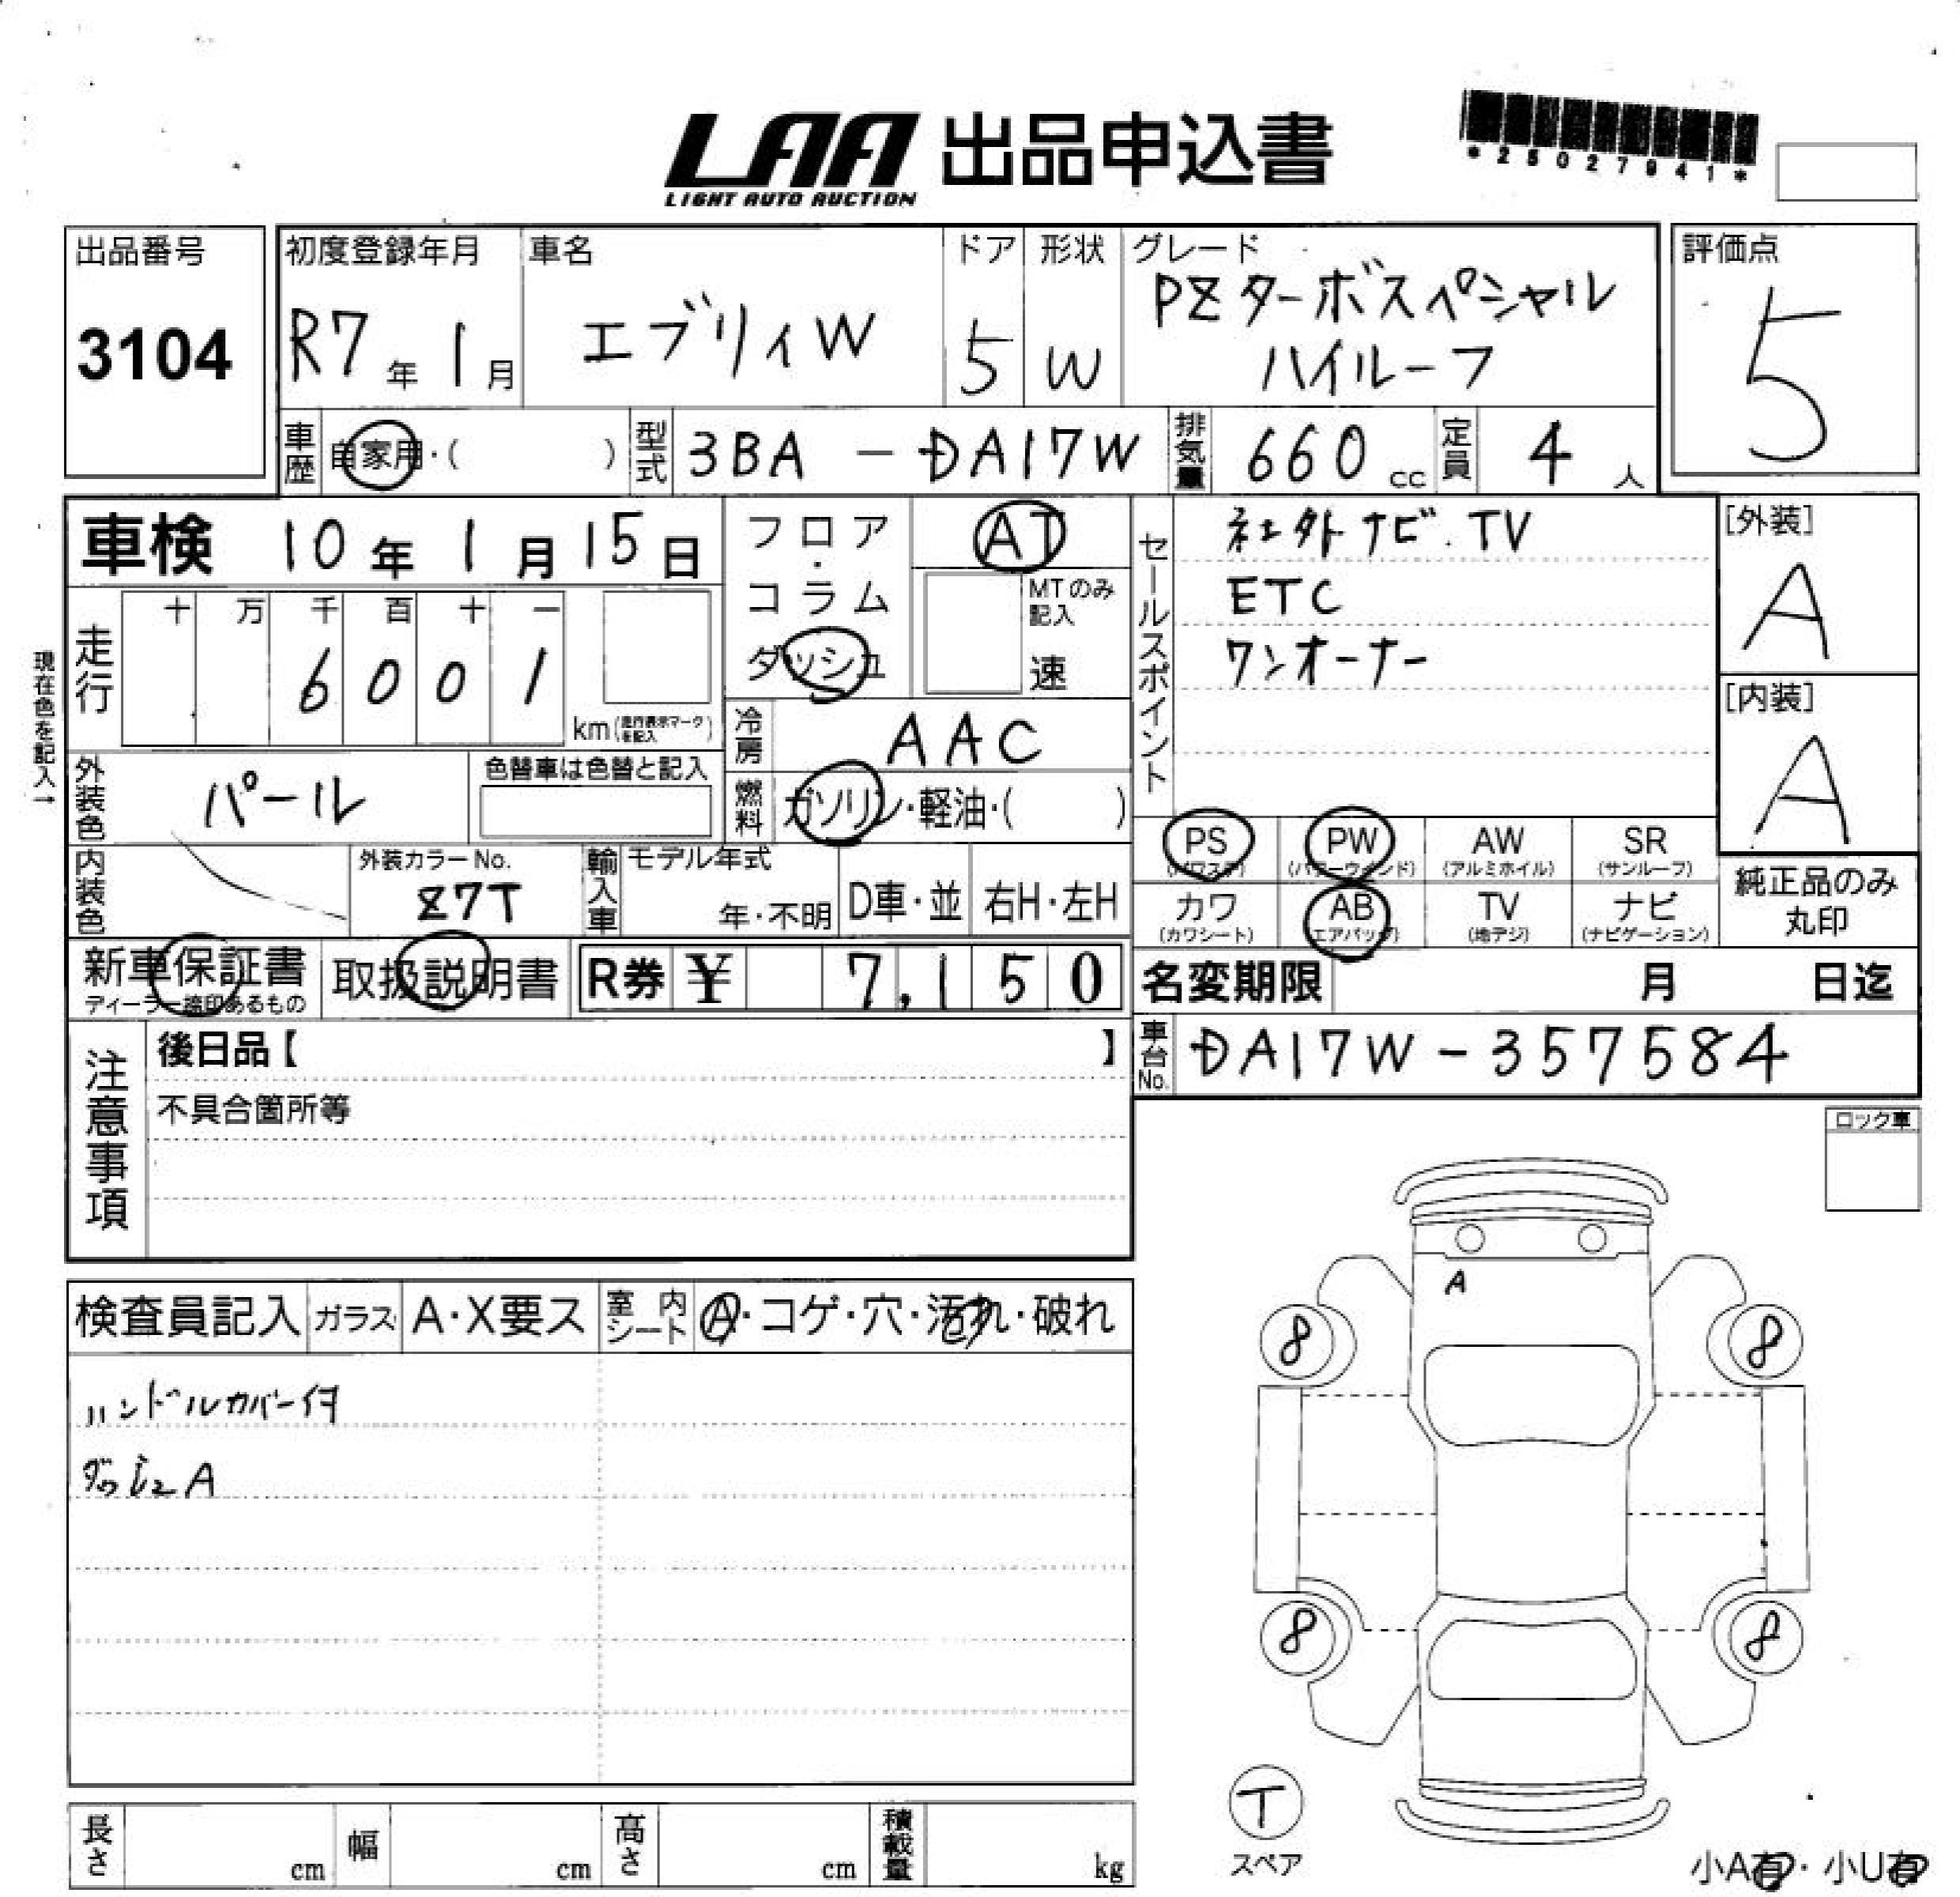 LAA 出品申込書
LIGHT AUTO AUCTION
*25027941*
出品番号
3104
初度登録年月
R7年 1月
車名
エブリィW
ドア
5
形状
W
グレード
PZターボスペシャル
ハイルーフ
評価点
5
車歴
自家用・( )
型式
3BA - DA17W
排気量
660 cc
定員
4 人
車検 10年 1月 15日
フロア・コラム
ダッシュ
AT
MTのみ記入
速
セールスポイント
社外ナビ.TV
ETC
ワンオーナー
[外装]
A
[内装]
A
現在色を記入→
走行
十 万 千 百 十 一
6 0 0 1
km(走行表示マークを記入)
冷房
AAC
外装色
パール
色替車は色替と記入
燃料
ガソリン・軽油・( )
内装色
外装カラーNo.
Z7T
輸入車
モデル年式
年・不明
D車・並
右H・左H
PS
(パワステ)
PW
(パワーウインド)
AW
(アルミホイル)
SR
(サンルーフ)
カワ
(カワシート)
AB
(エアバッグ)
TV
(地デジ)
ナビ
(ナビゲーション)
純正品のみ
丸印
新車保証書
ディーラー捺印あるもの
取扱説明書
R券 ¥ 7,150
名変期限 月 日迄
車台No.
DA17W-357584
注意事項
後日品【 】
不具合箇所等
ロック車
検査員記入
ガラス
A・X要ス
室内シート
A・コゲ・穴・汚れ・破れ
ハンドルカバー付
ダッシュA
A
8 8
8 8
T
スペア
長さ cm
幅 cm
高さ cm
積載量 kg
小A有・小U有